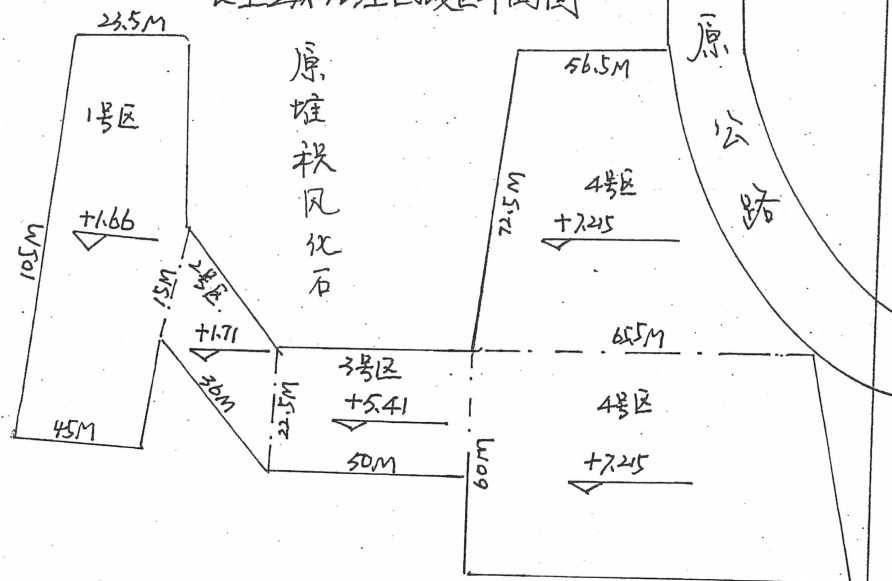 23.5M
1号区
+1.66
105M
15M
45M
2号区
+1.71
36M
22.5M
原堆积风化石
3号区
+5.41
50M
56.5M
72.5M
4号区
+7.215
65.5M
4号区
+7.215
60M
原公路